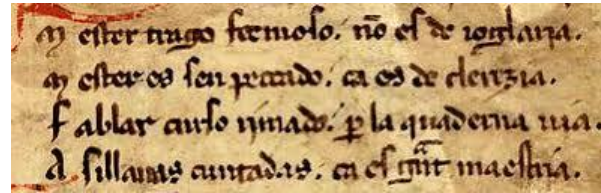 M ester trago fermoso. nõ es de ioglaria.
M ester es sen peccado. ca es de clerizia.
F ablar curso rimado. p̲ la quaderna uia.
A sillauas cuntadas. ca es grãt maestria.